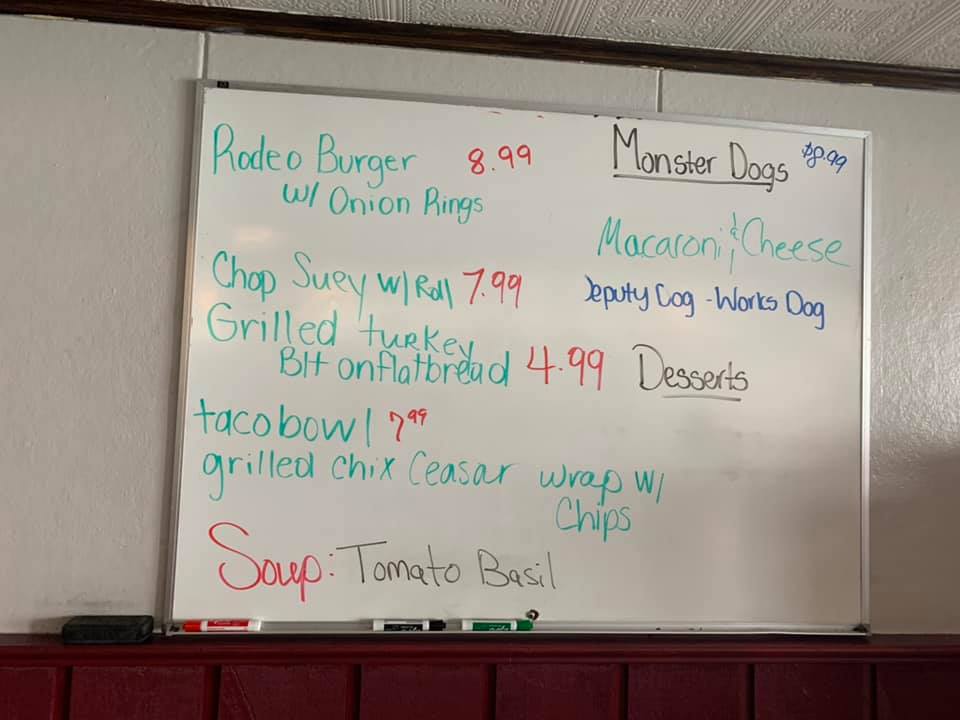 Rodeo Burger 8.99
w/ Onion Rings
Chop Suey w/ Roll 7.99
Grilled turkey
Blt on flatbread 4.99
taco bowl 7.99
grilled chix Ceasar wrap w/
Chips
Soup: Tomato Basil
Monster Dogs $8.99
Macaroni & Cheese
Deputy Dog - Works Dog
Desserts